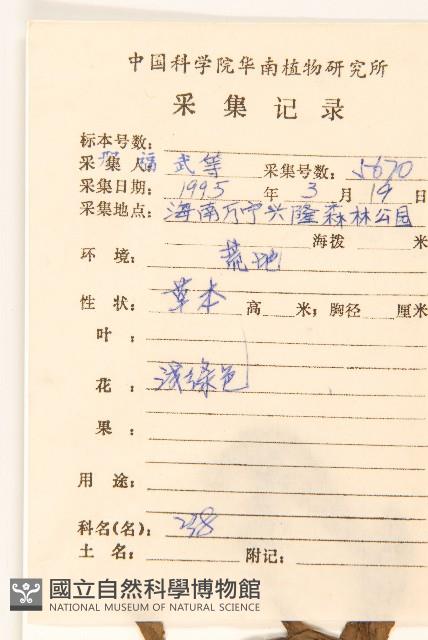 中国科学院华南植物研究所
采集记录
标本号数:
采集人: 邢福武等 采集号数: 5670
采集日期: 1995年3月14日
采集地点: 海南万宁兴隆森林公园
海拨 米
环境: 荒地
性状: 草本 高 米; 胸径 厘米
叶:
花: 浅绿色
果:
用途:
科名(名): 238
土名: 附记:
國立自然科學博物館
NATIONAL MUSEUM OF NATURAL SCIENCE